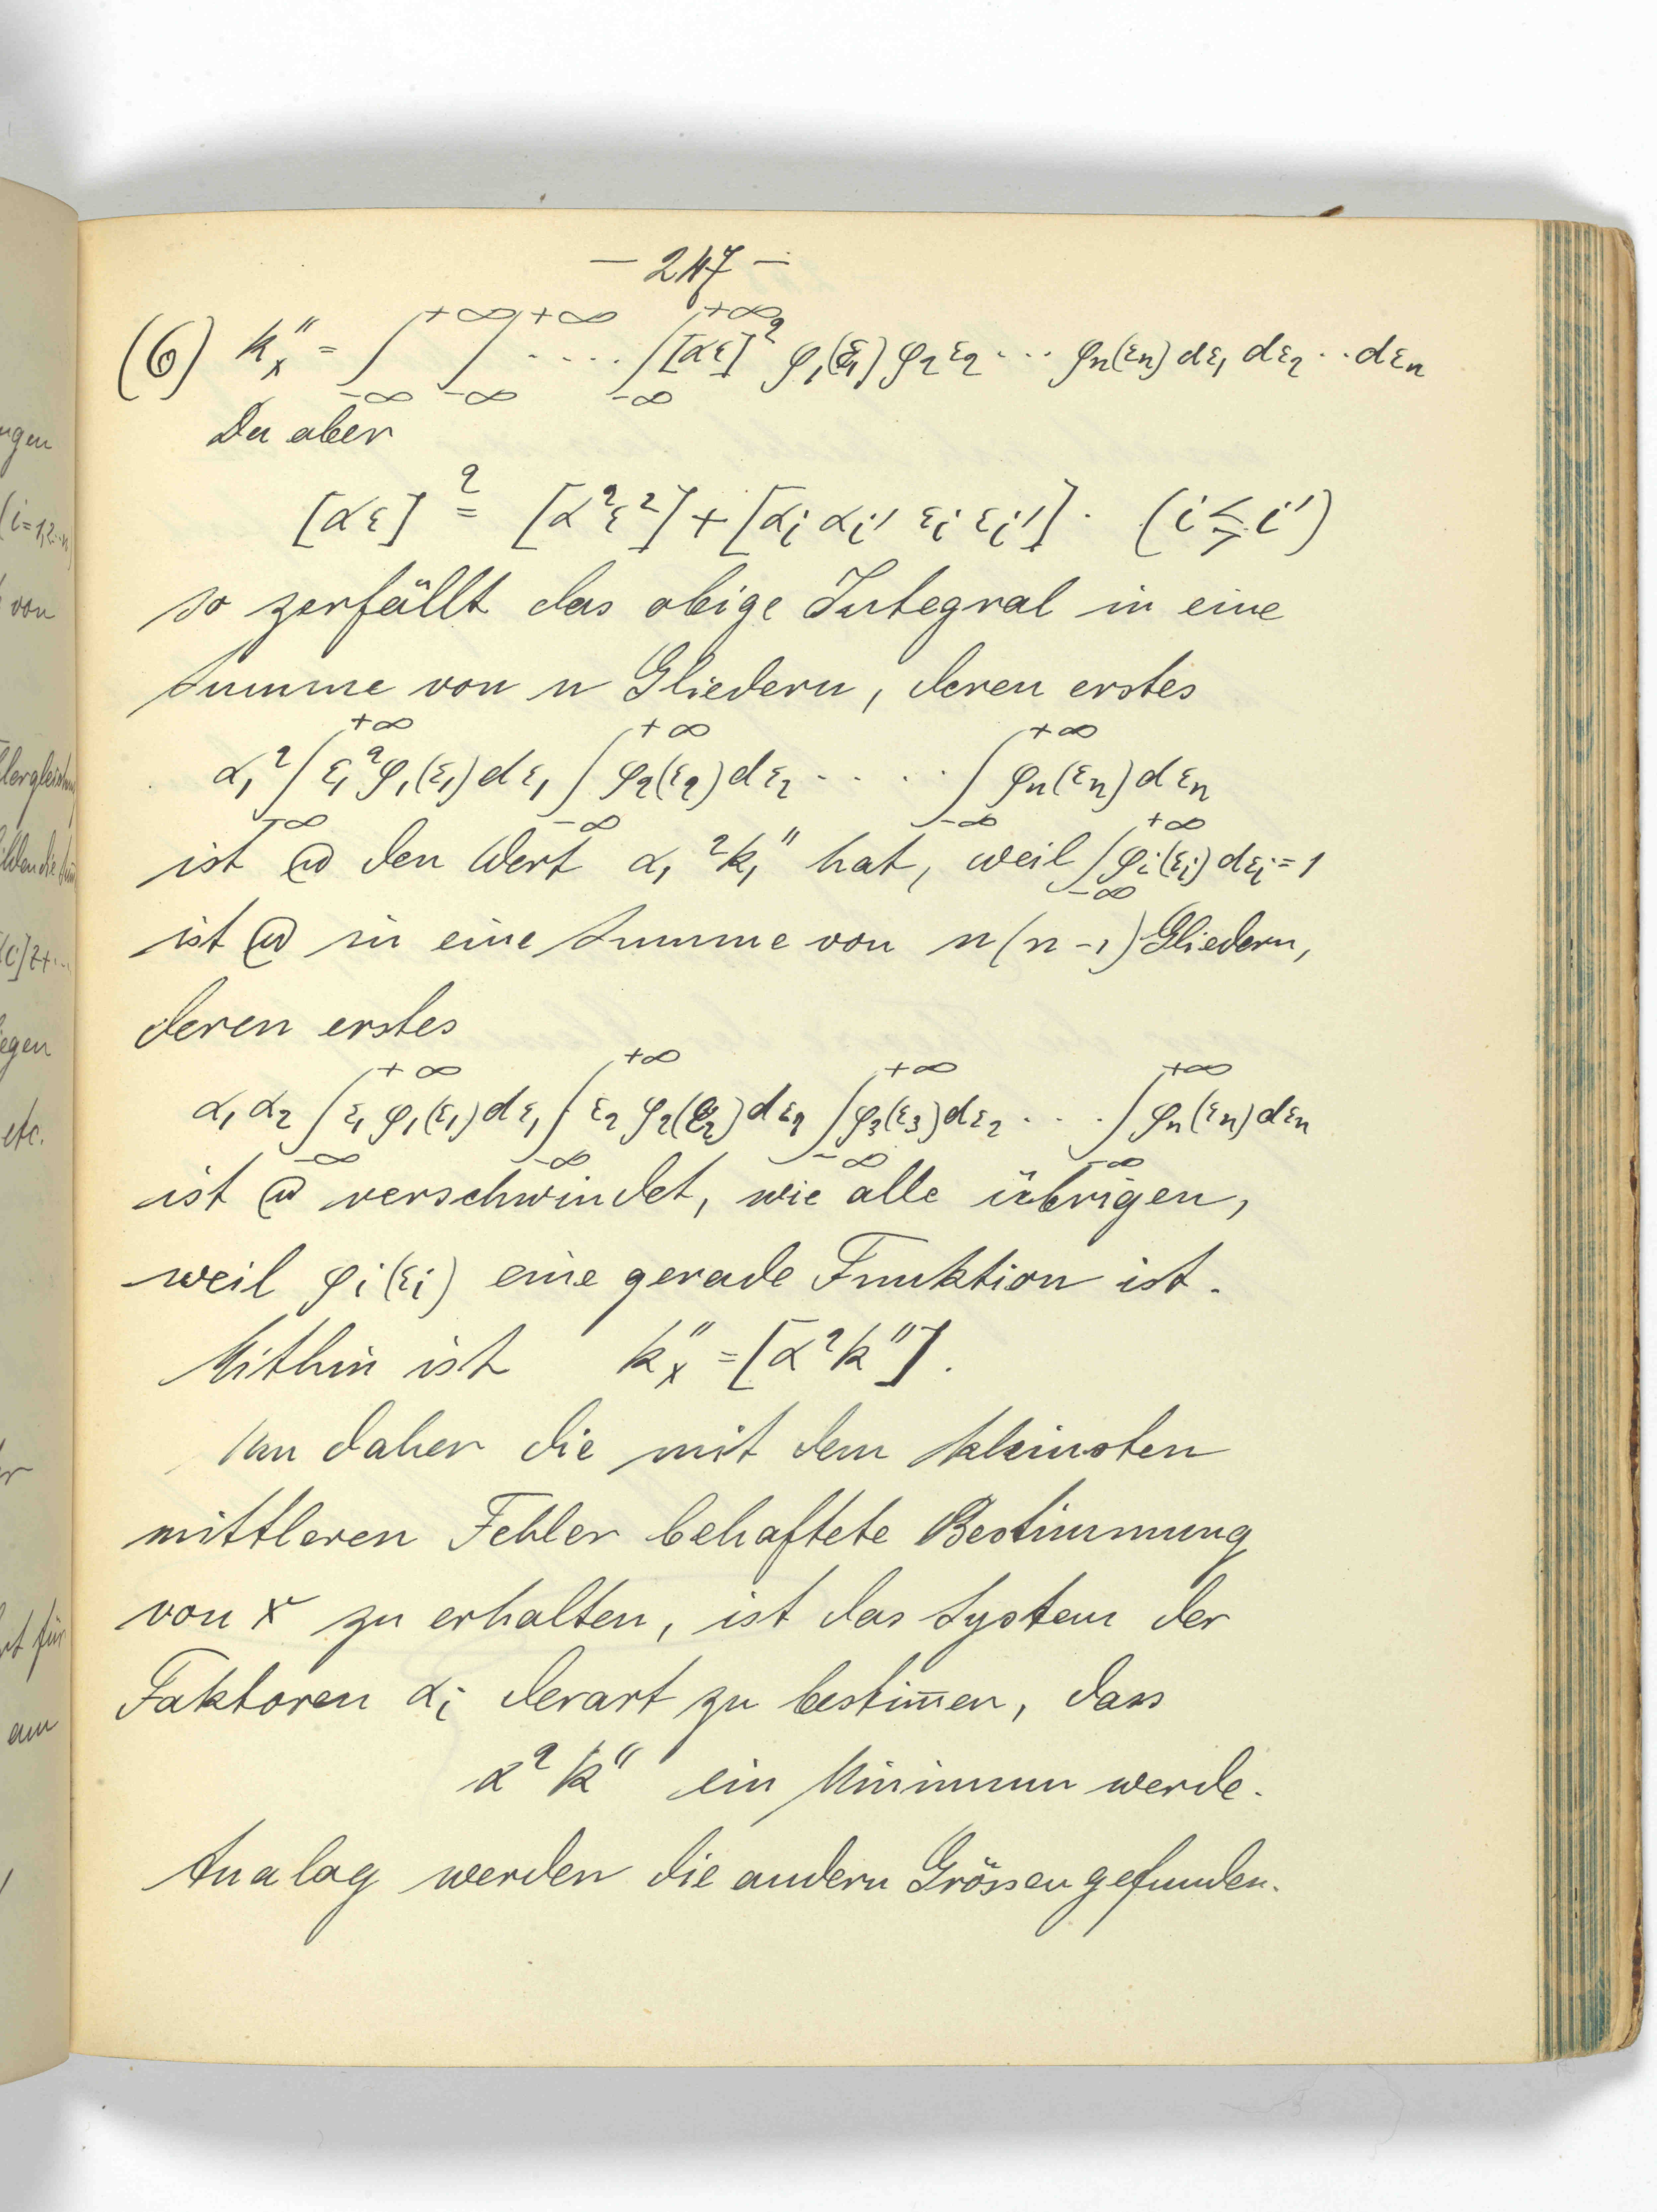 — 247 —
(6) k″ₓ = ∫₋∞^+∞ ∫₋∞^+∞ ..... ∫₋∞^+∞ [αε]² φ₁(ε₁) φ₂ ε₂ ... φₙ(εₙ) dε₁ dε₂ .. dεₙ
Da aber
[αε]² = [α²ε²] + [αᵢ αᵢ′ εᵢ εᵢ′] . (i ≶ i′)
so zerfällt das obige Integral in eine
Summe von n Gliedern, deren erstes
α₁² ∫₋∞^+∞ ε₁² φ₁(ε₁) dε₁ ∫₋∞^+∞ φ₂(ε₂) dε₂ ..... ∫₋∞^+∞ φₙ(εₙ) dεₙ
ist den Wert α₁² k₁″ hat, weil ∫₋∞^+∞ φᵢ(εᵢ) dεᵢ = 1
ist in eine Summe von n(n-1) Gliedern,
deren erstes
α₁ α₂ ∫₋∞^+∞ ε₁ φ₁(ε₁) dε₁ ∫₋∞^+∞ ε₂ φ₂(ε₂) dε₂ ∫₋∞^+∞ φ₃(ε₃) dε₂ ... ∫₋∞^+∞ φₙ(εₙ) dεₙ
ist verschwindet, wie alle übrigen,
weil φᵢ(εᵢ) eine gerade Funktion ist.
Mithin ist k″ₓ = [α²k″].
Um daher die mit dem kleinsten
mittleren Fehler behaftete Bestimmung
von x zu erhalten, ist das System der
Faktoren αᵢ derart zu bestim̅en, dass
α² k″ ein Minimum werde.
Analog werden die andern Grössen gefunden.